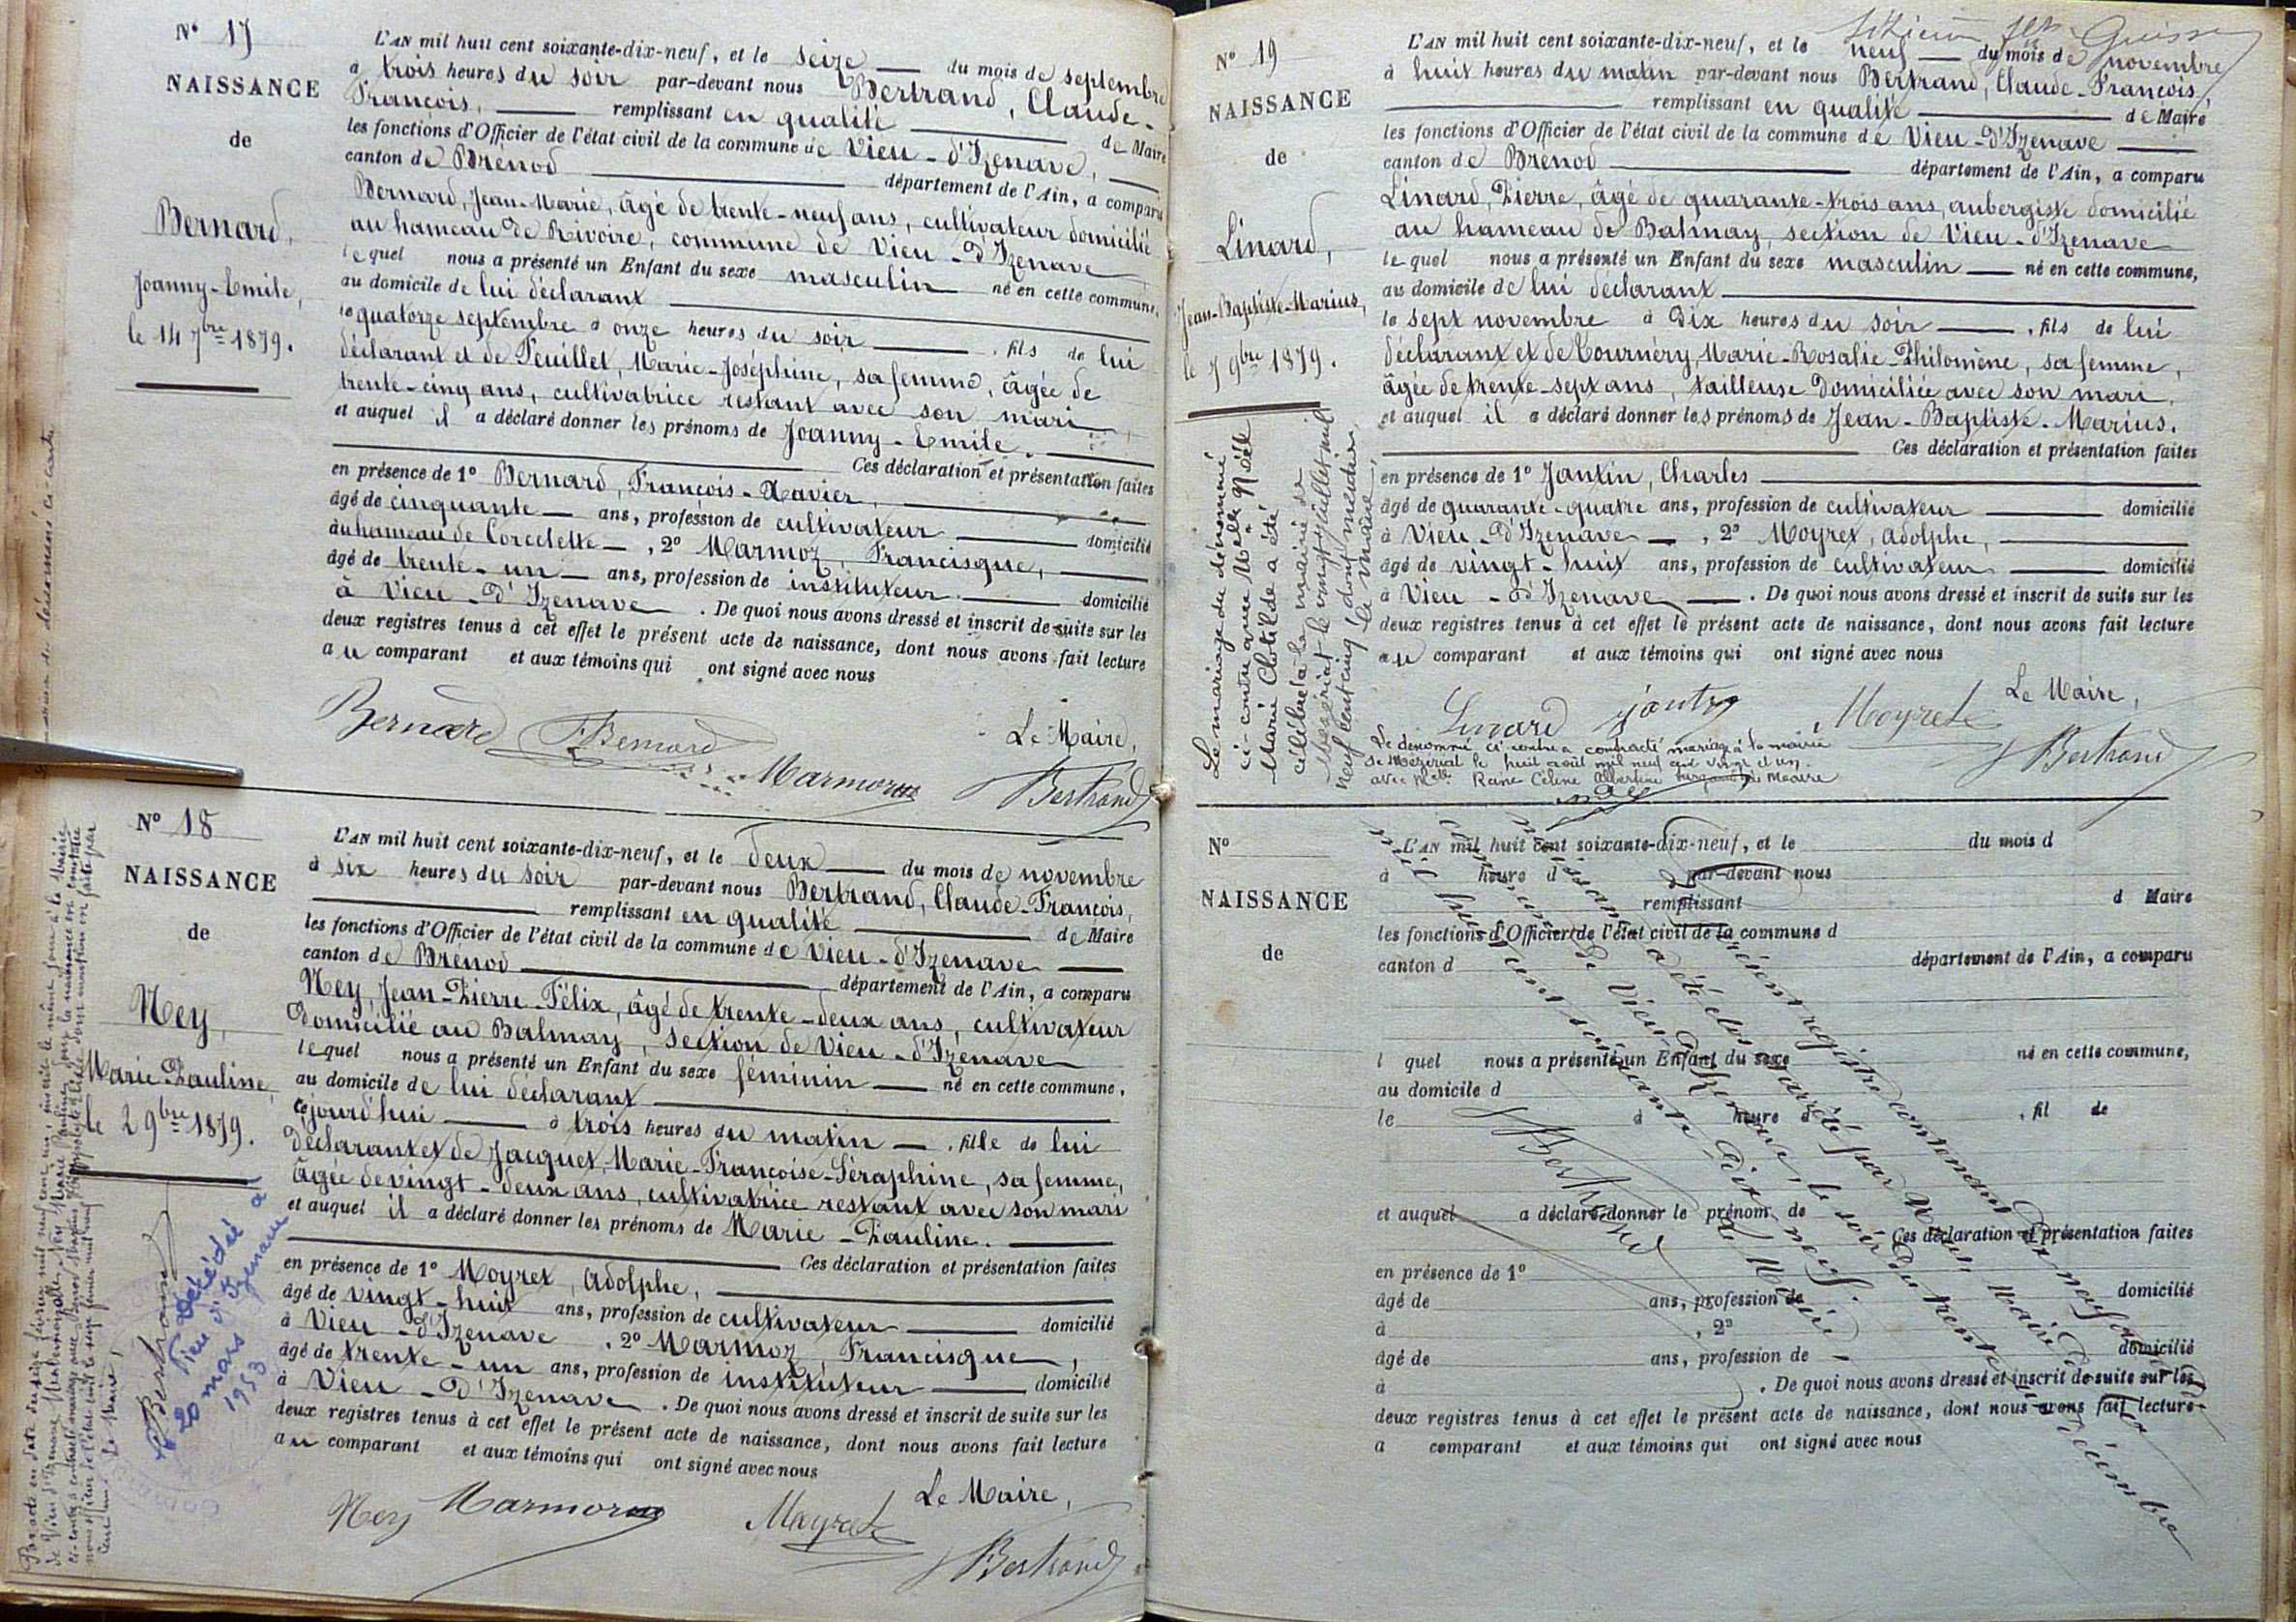 N° 17
NAISSANCE
de
Bernard,
Joanny-Emile,
le 14 7bre 1879.
L'AN mil huit cent soixante-dix-neuf, et le seize du mois de septembre
à trois heures du soir par-devant nous Bertrand, Claude-
François, remplissant en qualité de Maire
les fonctions d'Officier de l'état civil de la commune de Vieu-d'Izenave,
canton de Brénod département de l'Ain, a comparu
Bernard, Jean-Marie, âgé de trente-neuf ans, cultivateur domicilié
au hameau de Rivoire, commune de Vieu-d'Izenave
lequel nous a présenté un Enfant du sexe masculin né en cette commune,
au domicile de lui déclarant
le quatorze septembre à onze heures du soir, fils de lui
déclarant et de Feuillet, Marie-Joséphine, sa femme, âgée de
trente-cinq ans, cultivatrice restant avec son mari,
et auquel il a déclaré donner les prénoms de Joanny-Emile.
Ces déclaration et présentation faites
en présence de 1° Bernard, François-Xavier,
âgé de cinquante ans, profession de cultivateur domicilié
au hameau de Corcelette, 2° Marmoz, Francisque,
âgé de trente-un ans, profession de instituteur domicilié
à Vieu-d'Izenave. De quoi nous avons dressé et inscrit de suite sur les
deux registres tenus à cet effet le présent acte de naissance, dont nous avons fait lecture
au comparant et aux témoins qui ont signé avec nous
Le Maire,
Bernard F. Bernard Marmoz Bertrand
N° 18
NAISSANCE
de
Ney,
Marie-Pauline,
le 2 9bre 1879.
L'AN mil huit cent soixante-dix-neuf, et le deux du mois de novembre
à six heures du soir par-devant nous Bertrand, Claude-François,
remplissant en qualité de Maire
les fonctions d'Officier de l'état civil de la commune de Vieu-d'Izenave
canton de Brénod département de l'Ain, a comparu
Ney, Jean-Pierre-Félix, âgé de trente-deux ans, cultivateur
domicilié au Balmay, section de Vieu-d'Izenave
lequel nous a présenté un Enfant du sexe féminin né en cette commune,
au domicile de lui déclarant
cejourd'hui à trois heures du matin, fille de lui
déclarant et de Jacquet, Marie-Françoise-Séraphine, sa femme,
âgée de vingt-deux ans, cultivatrice restant avec son mari
et auquel il a déclaré donner les prénoms de Marie-Pauline.
Ces déclaration et présentation faites
en présence de 1° Moyret, Adolphe,
âgé de vingt-huit ans, profession de cultivateur domicilié
à Vieu-d'Izenave, 2° Marmoz, Francisque,
âgé de trente-un ans, profession de instituteur domicilié
à Vieu-d'Izenave. De quoi nous avons dressé et inscrit de suite sur les
deux registres tenus à cet effet le présent acte de naissance, dont nous avons fait lecture
au comparant et aux témoins qui ont signé avec nous
Le Maire,
Ney Marmoz Moyret Bertrand
Décédée à
Vieu d'Izenave
le 20 mars
1953
N° 19
NAISSANCE
de
Linard,
Jean-Baptiste-Marius,
le 7 9bre 1879.
L'AN mil huit cent soixante-dix-neuf, et le neuf du mois de novembre
à huit heures du matin par-devant nous Bertrand, Claude-François,
remplissant en qualité de Maire
les fonctions d'Officier de l'état civil de la commune de Vieu-d'Izenave
canton de Brénod département de l'Ain, a comparu
Linard, Pierre, âgé de quarante-trois ans, aubergiste domicilié
au hameau de Balmay, section de Vieu-d'Izenave
lequel nous a présenté un Enfant du sexe masculin né en cette commune,
au domicile de lui déclarant
le sept novembre à dix heures du soir, fils de lui
déclarant et de Tournéry, Marie-Rosalie-Philomène, sa femme,
âgée de trente-sept ans, tailleuse domiciliée avec son mari,
et auquel il a déclaré donner les prénoms de Jean-Baptiste-Marius.
Ces déclaration et présentation faites
en présence de 1° Jantin, Charles
âgé de quarante-quatre ans, profession de cultivateur domicilié
à Vieu-d'Izenave, 2° Moyret, Adolphe,
âgé de vingt-huit ans, profession de cultivateur domicilié
à Vieu-d'Izenave. De quoi nous avons dressé et inscrit de suite sur les
deux registres tenus à cet effet le présent acte de naissance, dont nous avons fait lecture
au comparant et aux témoins qui ont signé avec nous
Le Maire,
Linard Jantin Moyret Bertrand
Le mariage du dénommé
ci-contre avec Melle Noël
Marie Clotilde a été
célébré à la mairie de
Mézériat le vingt juillet mil
neuf cent cinq, dont mention,
le maire,
Le dénommé ci-contre a contracté mariage à la mairie
de Mézériat le huit août mil neuf cent vingt et un
avec Melle Reine Céline Albertine
N°
NAISSANCE
de
L'AN mil huit cent soixante-dix-neuf, et le du mois d
à heure d par-devant nous
remplissant d Maire
les fonctions d'Officier de l'état civil de la commune d
canton d département de l'Ain, a comparu
l quel nous a présenté un Enfant du sexe né en cette commune,
au domicile d
le à heure d , fil de
et auquel a déclaré donner le prénom de
Ces déclaration et présentation faites
en présence de 1°
âgé de ans, profession de domicilié
à , 2°
âgé de ans, profession de domicilié
à . De quoi nous avons dressé et inscrit de suite sur les
deux registres tenus à cet effet le présent acte de naissance, dont nous avons fait lecture
a comparant et aux témoins qui ont signé avec nous
Le présent registre contenant dix-neuf actes de
naissance a été clos et arrêté par Nous Maire de la
commune de Vieu-d'Izenave, le soir du trente-un décembre
mil huit cent soixante-dix-neuf.
Le Maire
Bertrand